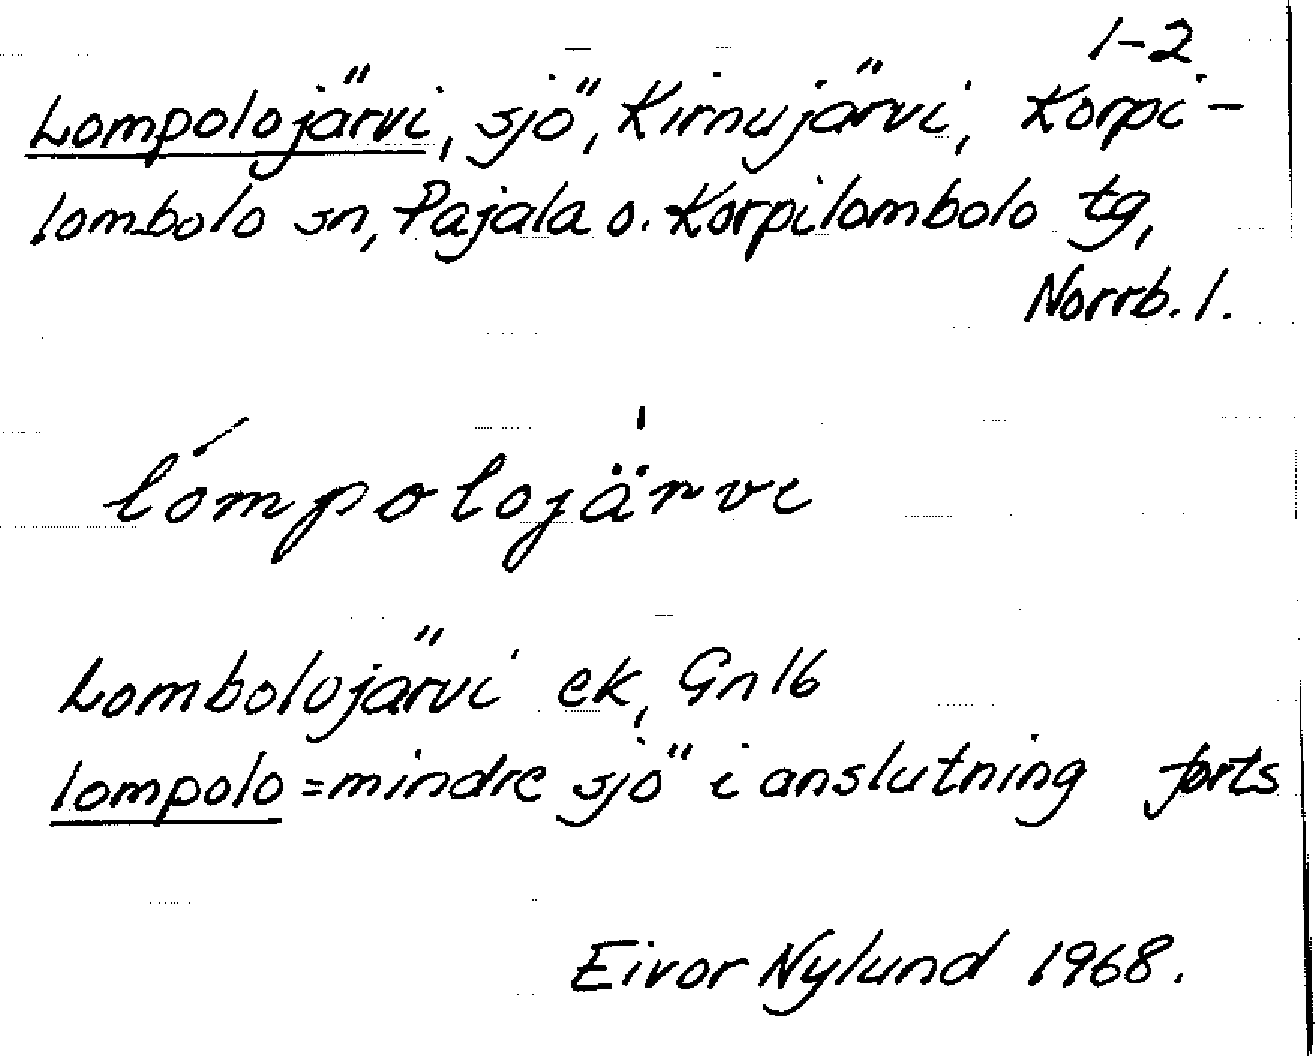 1-2
Lompolojärvi, sjö, Kirnujärvi, Korpi-
lombolo sn, Pajala o. Korpilombolo tg,
Norrb. l.
lómpolojärvi
Lombolojärvi ek, Gn 16
lompolo = mindre sjö i anslutning forts
Eivor Nylund 1968.